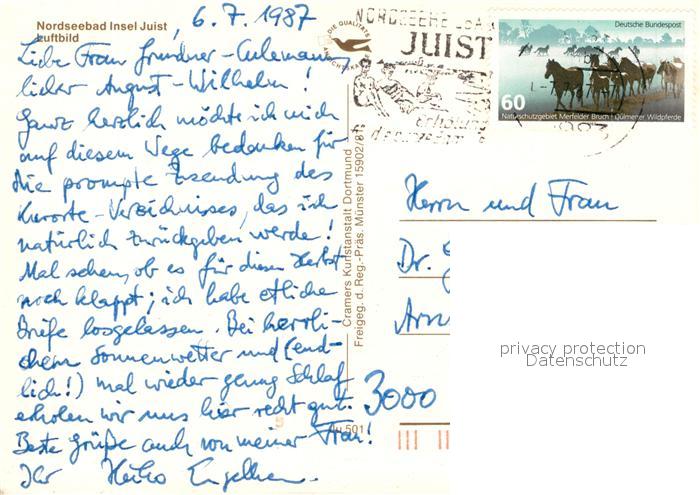 Nordseebad Insel Juist
Luftbild
, 6.7.1987
Liebe Frau Grundner-Culemann,
lieber August-Wilhelm!
Ganz herzlich möchte ich mich
auf diesem Wege bedanken für
die prompte Zusendung des
Kurorte-Verzeichnisses, das ich
natürlich zurückgeben werde!
Mal sehen, ob es für diesen Herbst
noch klappt; ich habe etliche
Briefe losgelassen. Bei herrli-
chem Sonnenwetter und (end-
lich!) mal wieder genug Schlaf
erholen wir uns hier recht gut.
Beste Grüße auch von meiner Frau!
Ihr Heiko
Cramers Kunstanstalt Dortmund
Freigeg. d. Reg.-Präs. Münster 15902/81
501
NORDSEEHEILBAD
JUIST
Deutsche Bundespost
60
Naturschutzgebiet Merfelder Bruch · Dülmener Wildpferde
Herrn und Frau
Dr.
3000
privacy protection
Datenschutz